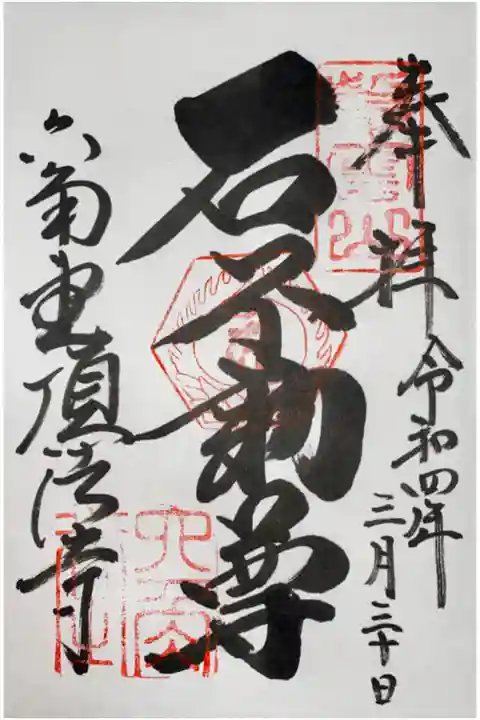 奉拝
令和四年
三月三十日
石不動尊
六角堂頂法寺